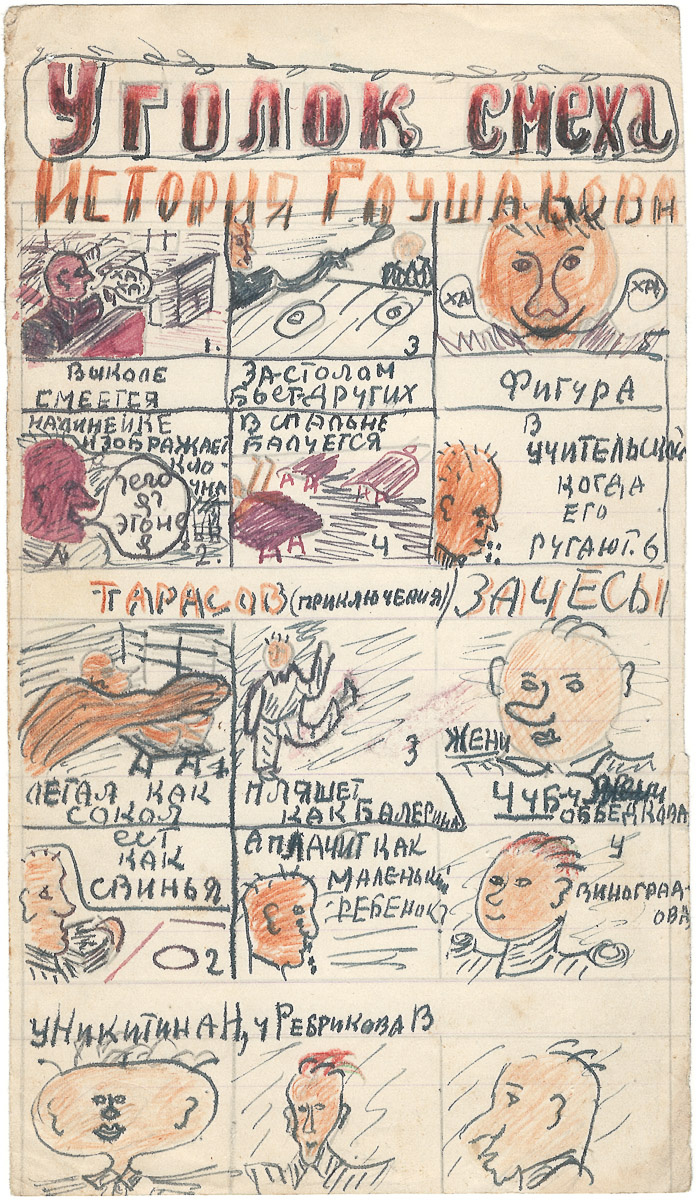 Уголок смеха
История Глушакова Н
ХА! ХА!
1.
В школе
смеется
3
За столам
бьет других
ХА
ХА
5
Фигура
На линейке
изображает
клоуна
чего
я?
это не
я
2.
В спальне
балуется
4
В
учительской
когда
его
ругают. 6
Тарасов (приключения)
Зачесы
Легал как
сокол
1
3
Пляшет
как балерина
Жени
Чуб у
Объедкова
ест
как
свинья
2
А плачит как
маленький
ребенок
у
Виноград-
ова
у Никитина Н, у Ребрикова В